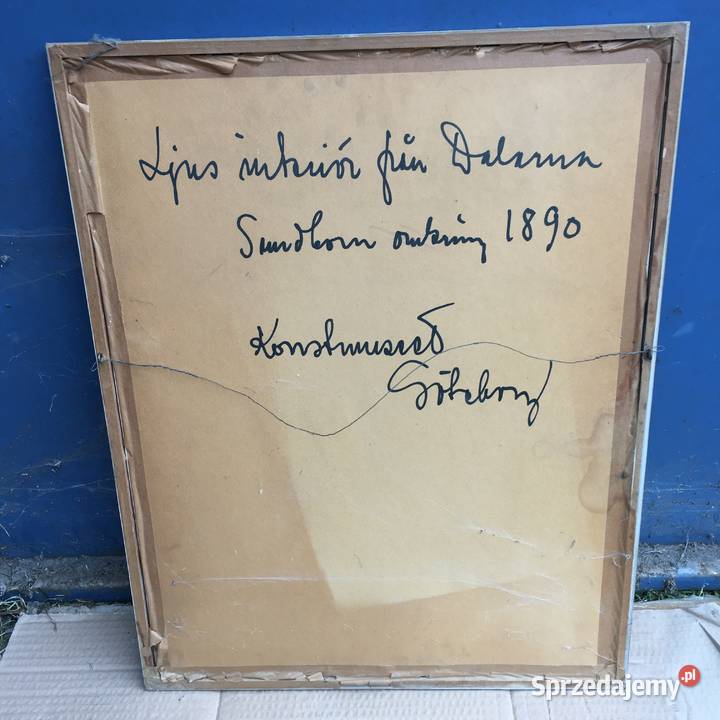 Ljus interiör från Dalarna
Sundborn omkring 1890
Konstmuseet
Göteborg
Sprzedajemy.pl